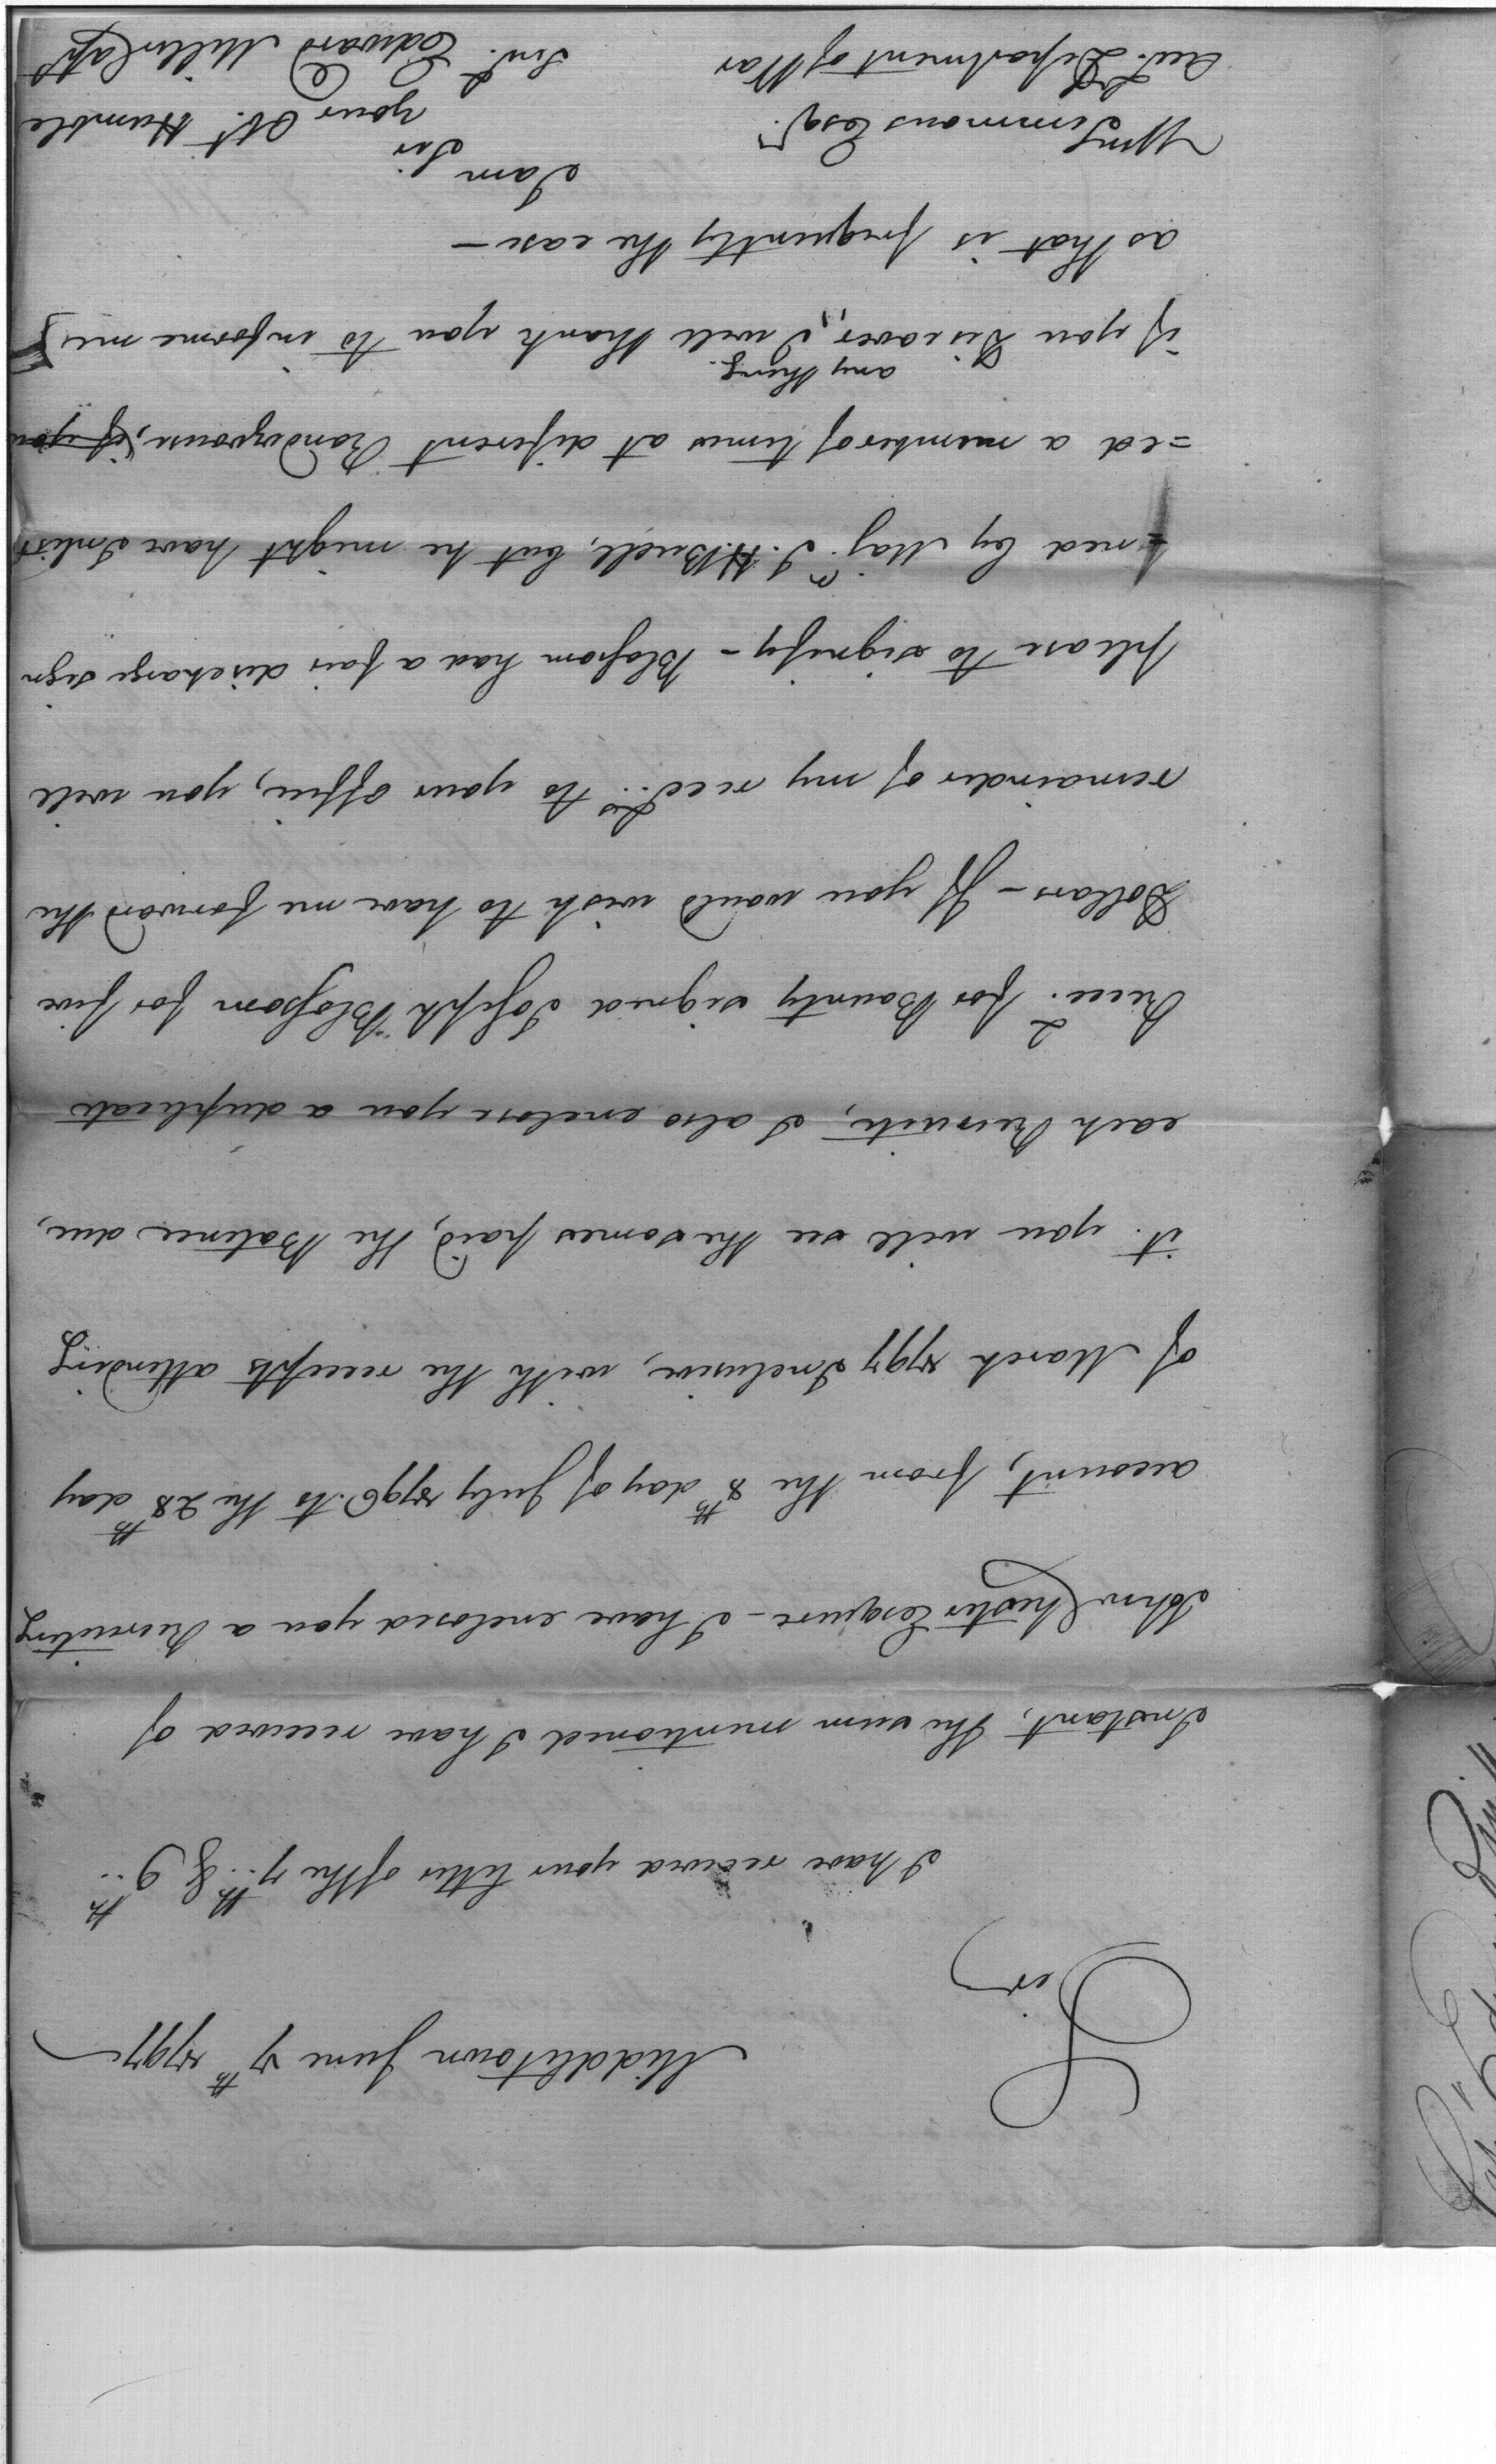 Middletown June 7th 1797
Sir
I have received your letter of the 7th & 9th
Instant, the sum mentioned I have received of
John Chester Esquire - I have enclosed you a Recruiting
account, from the 8th day of July 1796. to the 28th day
of March 1797 Inclusive, with the receipts attending
it. you will see the somes paid, the Balance due,
each Recruit, I also enclose you a duplicate
Recd. for Bounty signed Joseph Blossom for five
Dollars - If you would wish to have me forward the
remainder of my recds. to your office, you will
please to signify - Blossom had a fair discharge sign
=ned by Majr. J. H Buell, but he might have Inlist
=ed a number of times at diferent Randezvous, if you
any thing
if you Discover, I will thank you to informe me,
as that is frequently the case -
I am
Sir
your Obt. Humble
Servt. Edward Miller Capt
Wm Simmons Esqr.
Act. Department of War